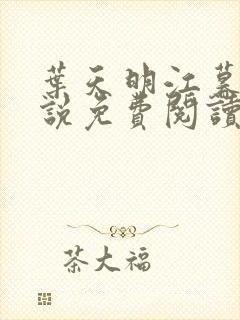 葉天明江慕
說免費閱讀
茶大福